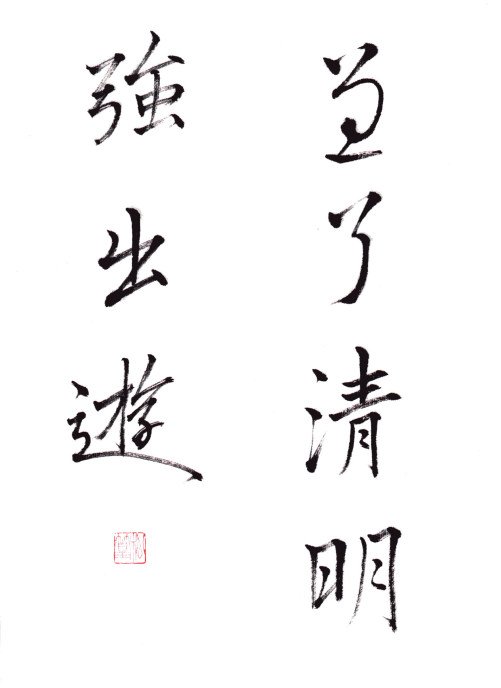 了清明
強出遊